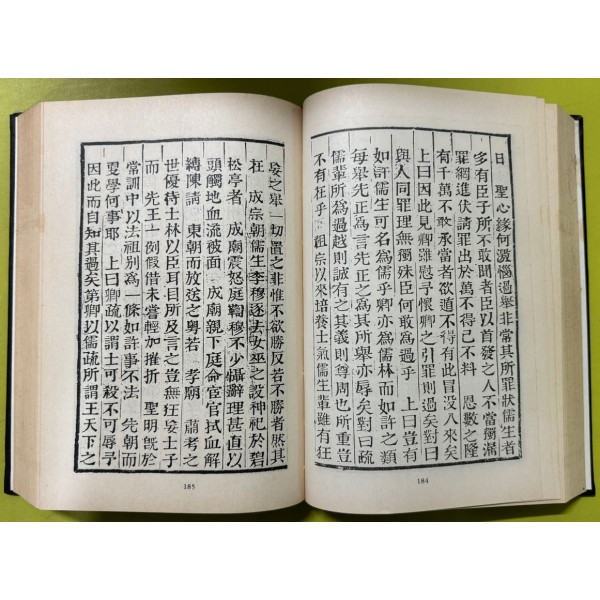 日 聖心緣何激惱過擧非常其所罪狀儒生者
多有臣子所不敢聞者臣以首發之人不當獨漏
罪網進伏請罪出於萬不得已不料 恩數之隆
有千萬不敢承當者欲逭不得有此冒沒入來矣
上曰因此見卿雖慰予懷卿之引罪則過矣對曰
與人同罪理無獨殊臣何敢爲過乎 上曰豈有
如許儒生可名爲儒乎卿亦爲儒林而如許之類
每擧先正爲言先正之爲其所擧亦辱矣對曰疏
儒輩所爲過越則誠有之其義則尊周也所重豈
不有在乎 祖宗以來培養士氣儒生輩雖有狂
184
妄之擧一切置之非惟不欲勝反若不勝者然其
在 成宗朝儒生李穆逐去女巫之設神祀於碧
松亭者 成廟震怒庭鞫穆不少懾辭理甚直以
頭觸地血流被面 成廟親下庭命宦官拭血解
縛陳請 東朝而放送之粤若 孝廟 肅考之
世優待士林以臣耳目所及言之豈無狂妄士子
而 先王一例假借未嘗輕加摧折 聖明旣於
常訓中以法祖別爲一條如許事不法 先朝而
更學何事耶 上曰卿疏以謂士可殺不可辱予
因此而自知其過矣第卿以儒疏所謂王天下之
185